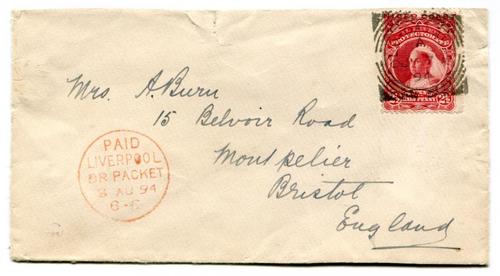 PROTECTORATE
HALF PENNY
2½
Mrs. A. Burn
15 Belvoir Road
Montpelier
Bristol
England
PAID
LIVERPOOL
BR PACKET
3 AU 94